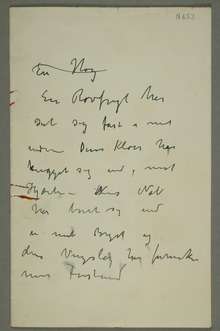 N652
En
En Rovfugl har
sat sig fast i mit
indre Dens Kløer har
hugget sig ind i mit
Hjerte Dens Næb
har boret sig ind
i mit Bryst og
dens Vingeslag har formørket
min Forstand